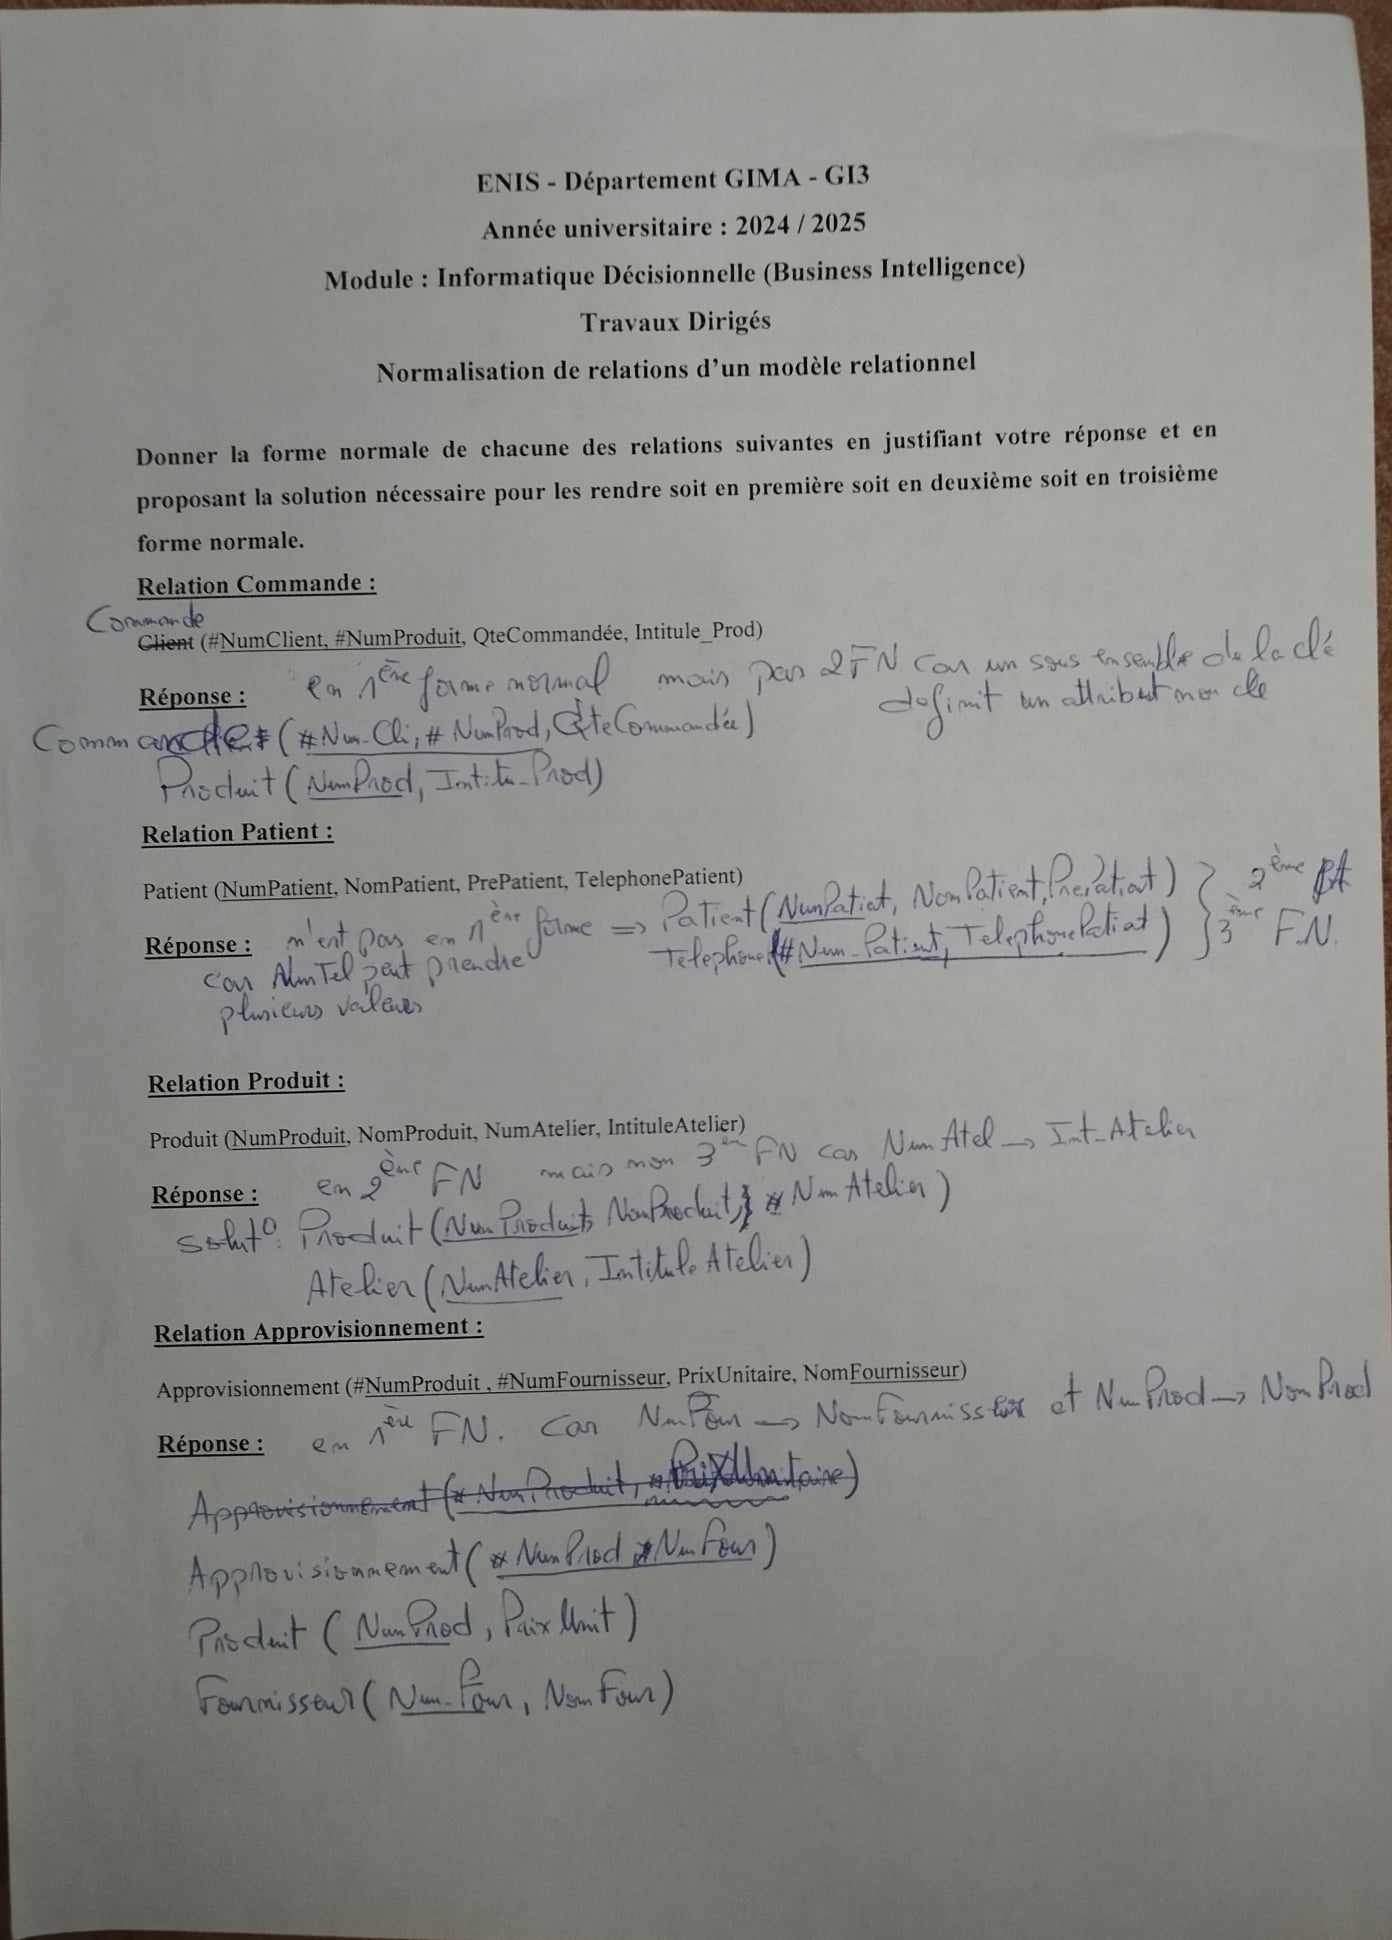 ENIS - Département GIMA - GI3
Année universitaire : 2024 / 2025
Module : Informatique Décisionnelle (Business Intelligence)
Travaux Dirigés
Normalisation de relations d'un modèle relationnel
Donner la forme normale de chacune des relations suivantes en justifiant votre réponse et en
proposant la solution nécessaire pour les rendre soit en première soit en deuxième soit en troisième
forme normale.
Relation Commande :
Commande
Client (#NumClient, #NumProduit, QteCommandée, Intitule_Prod)
Réponse : en 1ère forme normal mais pas 2FN car un sous ensemble de la clé
definit un attribut non cle
Commande (#Num_Cli, #NumProd, QteCommandée)
Produit (NumProd, Intitu_Prod)
Relation Patient :
Patient (NumPatient, NomPatient, PrePatient, TelephonePatient)
Réponse : n'ent pas en 1ère forme => Patient (NumPatient, NomPatient, PrePatient) } 2ème
car NumTel peut prendre Telephone (#Num_Patient, TelephonePatient) } 3ème F.N.
plusieurs valeurs
Relation Produit :
Produit (NumProduit, NomProduit, NumAtelier, IntituleAtelier)
Réponse : en 2ème FN mais non 3ème FN car NumAtel → Int_Atelier
Solut°: Produit (NumProduit, NomProduit, #NumAtelier)
Atelier (NumAtelier, IntituleAtelier)
Relation Approvisionnement :
Approvisionnement (#NumProduit , #NumFournisseur, PrixUnitaire, NomFournisseur)
Réponse : en 1ère FN. Car NumFour → NomFournisseur et NumProd → NomProd
Approvisionnement (#NumProduit, #PrixUnitaire)
Approvisionnement (#NumProd, #NumFour)
Produit (NumProd, PrixUnit)
Fournisseur (Num_Four, NomFour)